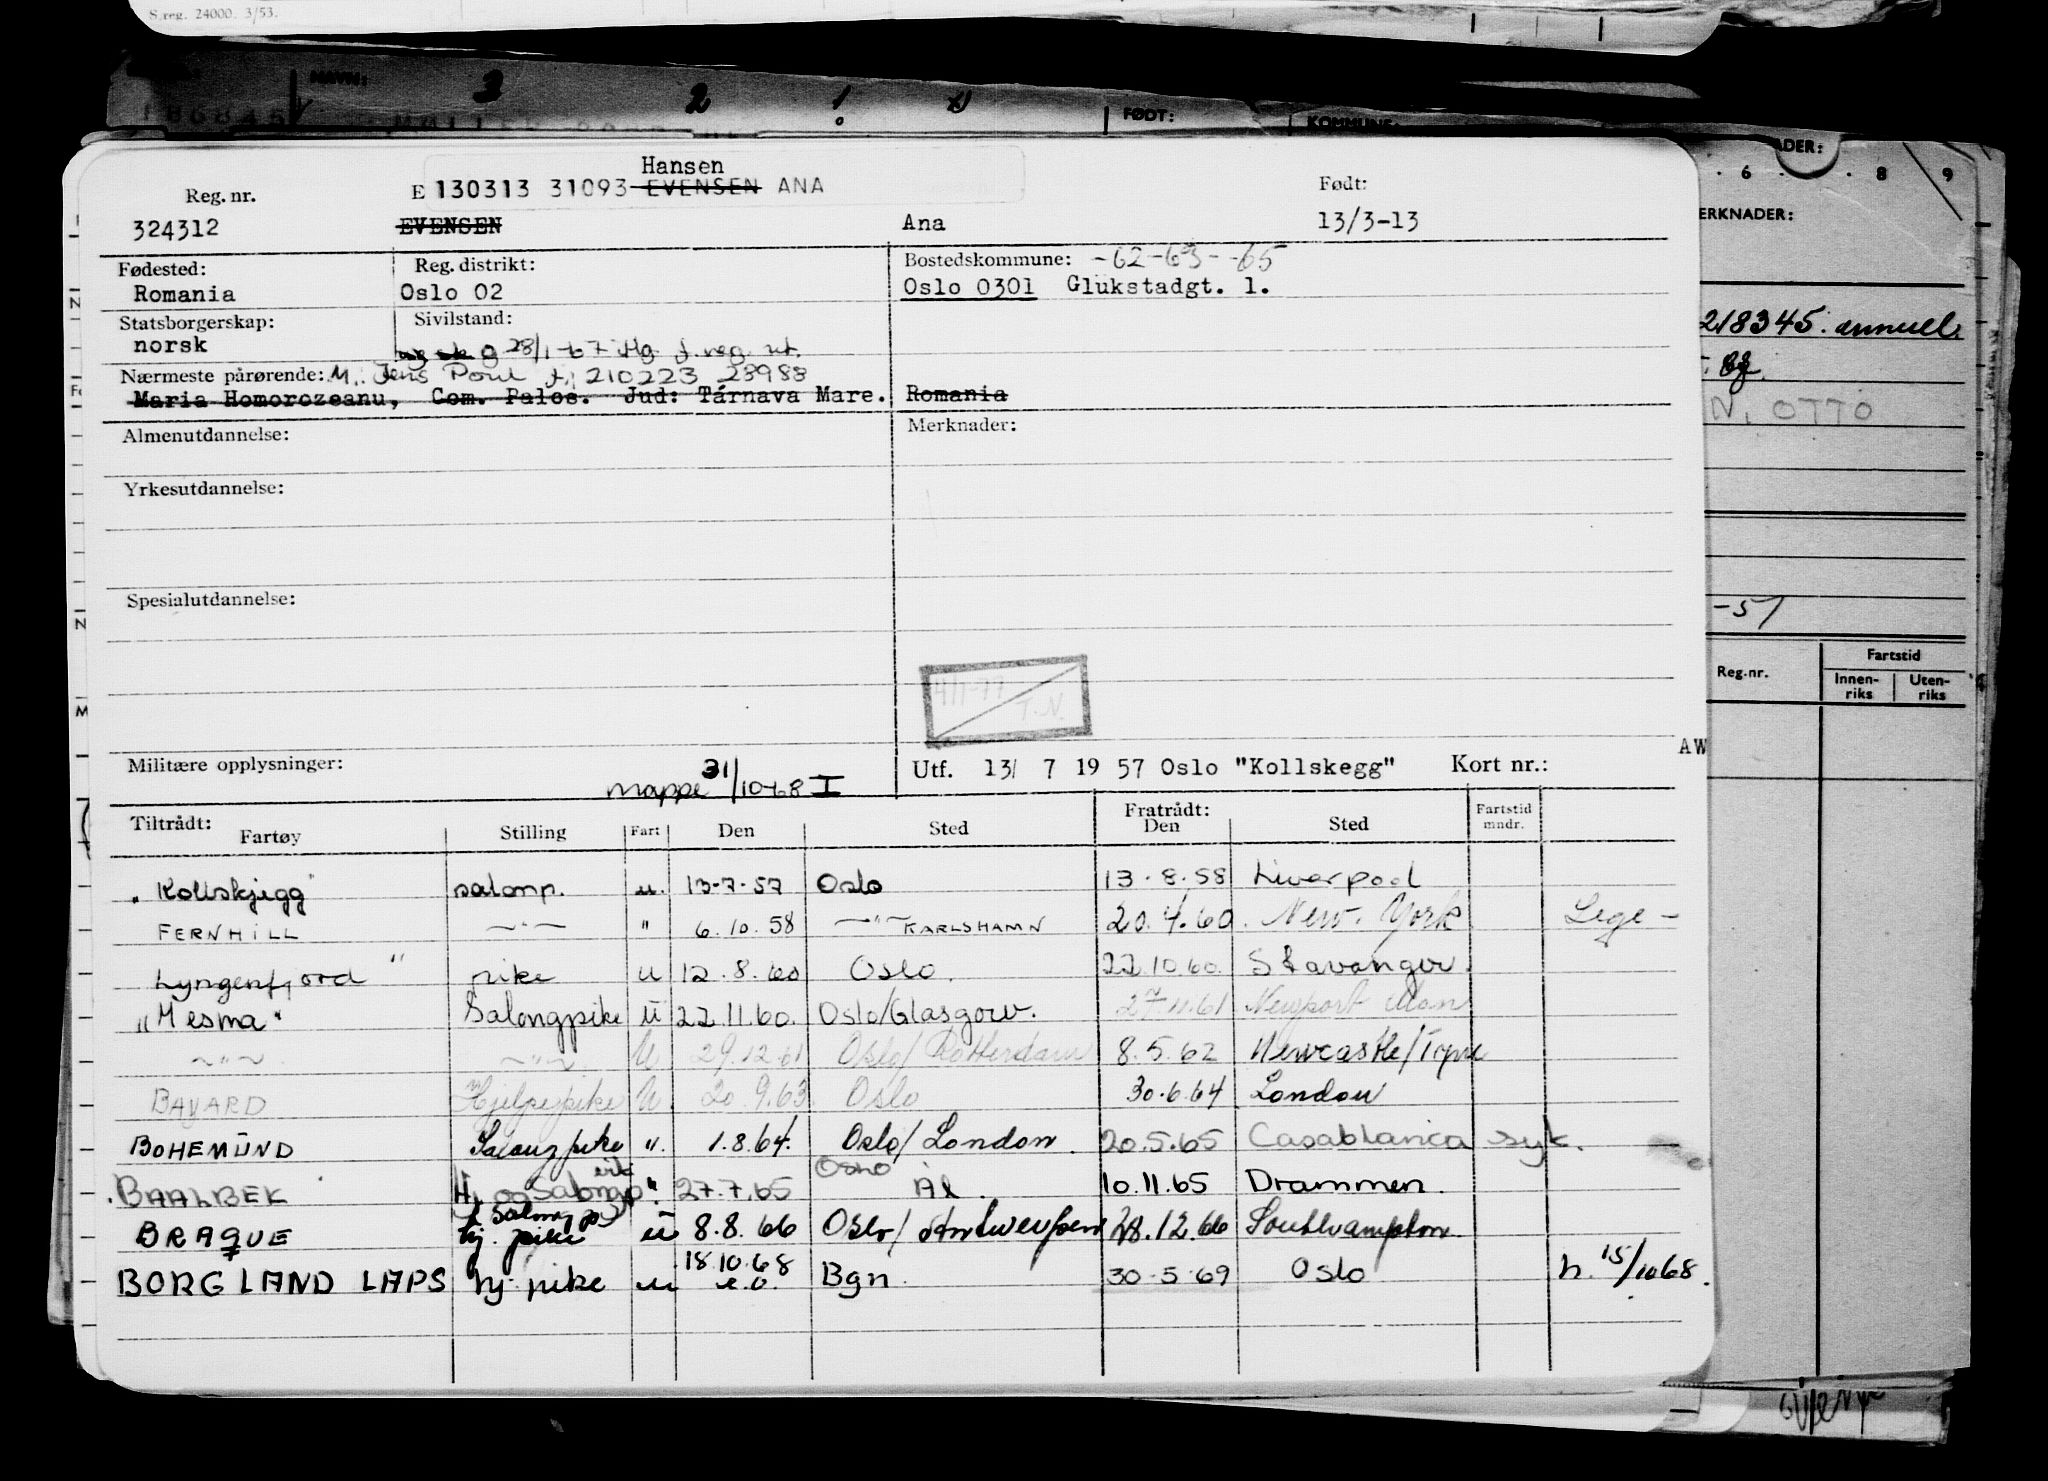 S.reg. 24000. 3/53.
NAVN: 3 2 1
FØDT:
KOMMUNE:
Hansen
Reg. nr. E 130313 31093 EVENSEN ANA Født:
324312 EVENSEN Ana 13/3-13
Fødested: Reg. distrikt: Bostedskommune: -62-63--65
Romania Oslo 02 Oslo 0301 Glükstadgt. 1.
Statsborgerskap: Sivilstand:
norsk g 28/1-67 Hg f. reg. nt.
Nærmeste pårørende: M. Jens Poul f. 210223 28988
Maria Homorozeanu, Com. Palos. Jud: Tárnava Mare. Romania
Almenutdannelse: Merknader:
Yrkesutdannelse:
Spesialutdannelse:
4/1-77
T.N.
Militære opplysninger: mappe 31/10-68 I Utf. 13/ 7 19 57 Oslo "Kollskegg" Kort nr.:
AW
Tiltrådt: Fratrådt: Fartstid
Fartøy Stilling Fart Den Sted Den Sted mndr.
"Kollskjegg" salonp. u. 13-7-57 Oslo 13.8.58 Liverpool
FERNHILL —"— " 6.10.58 —"— KARLSHAMN 20.4.60. New. York Lege -
Lyngenfjord " pike u 12.8.60 Oslo. 22.10.60. Stavanger.
"Mesma" Salongpike u 22.11.60. Oslo/Glasgow. 27/11.61 Newport Mon
~"~ ~"~ U 29.12.61 Oslo/Rotterdam 8.5.62 Newcastle/Tyne
BAYARD Hjelpepike U. 20.9.63. Oslo 30.6.64 London
BOHEMUND Salongpike ". 1.8.64. Oslo/London. 20.5.65 Casablanca syk.
BAALBEK Hj. og Salongp ". 27.7.65 Oslo Ål. 10.11.65 Drammen.
BRAQUE hj. pike Salong p u 8.8.66 Oslo/Antwerpen 28.12.66 Southampton.
BORGLAND LAPS hj. pike u 18.10.68 e.o. Bgn. 30-5-69 Oslo h. 15/1068.
ADER:
. 6 . . 8 9
ERKNADER:
218345. annull.
N, OTTO
-57
Reg.nr. Fartstid
Innen-riks Uten-riks